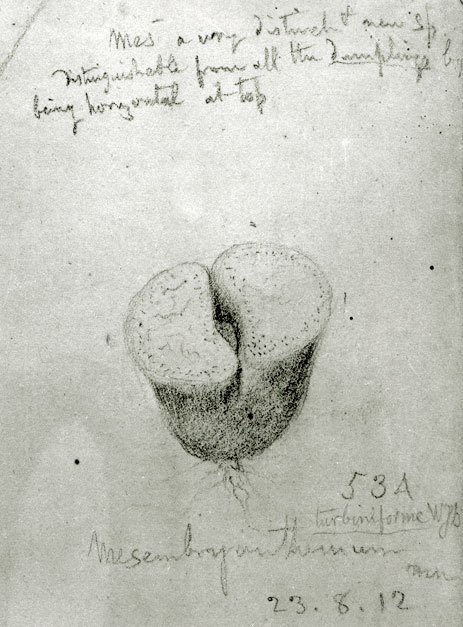 Mes a very distinct & new sp
distinguishable from all the Dumplings by
being horizontal at top
53A
turbiniforme WJB
Mesembryanthemum
23.8.12